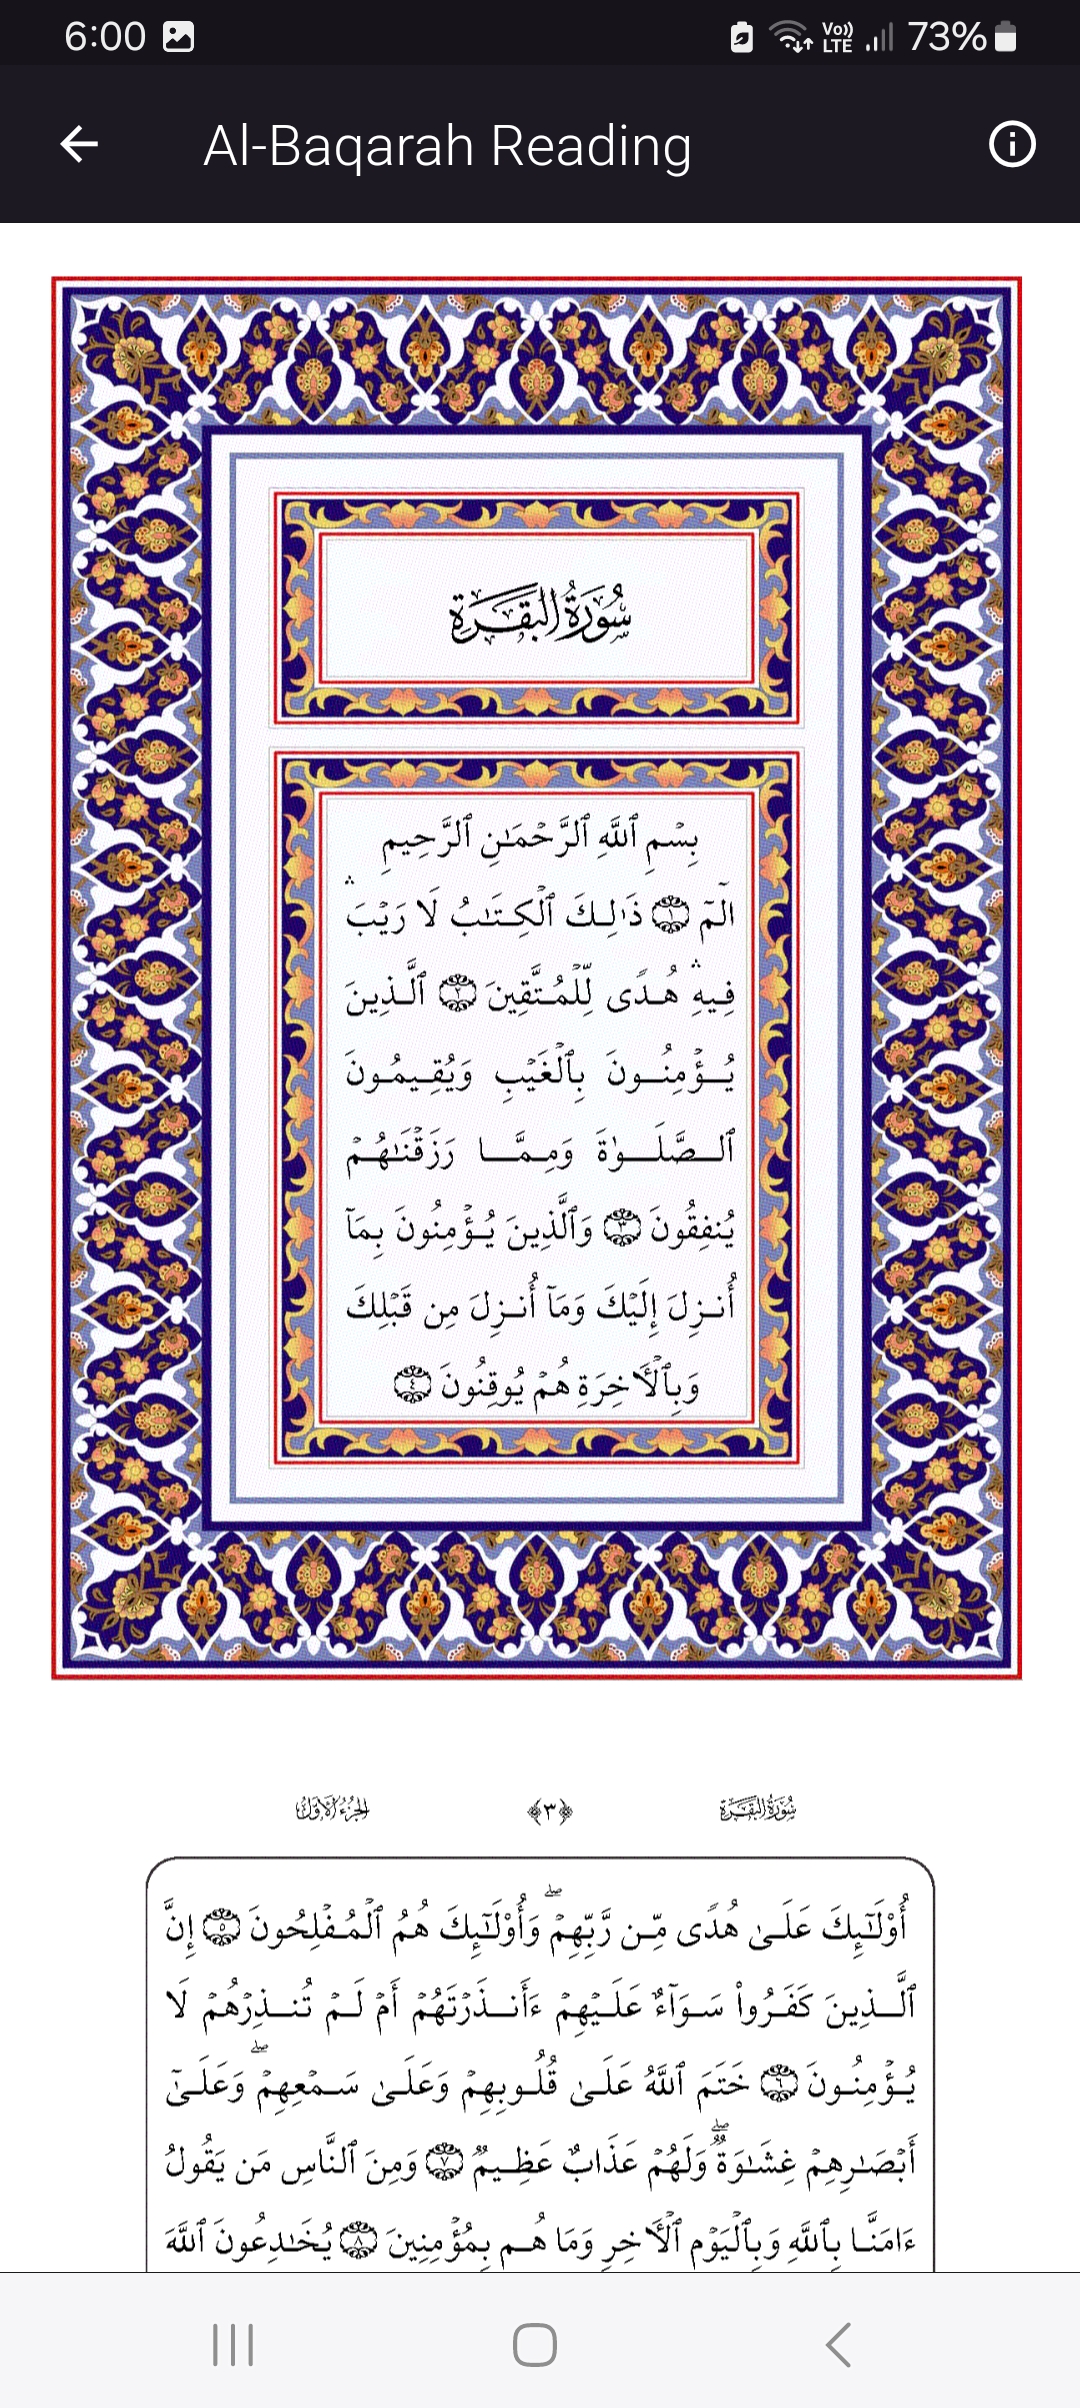 6:00
Vo)) LTE 73%
Al-Baqarah Reading
سُورَةُ البَقَرَةِ
بِسْمِ ٱللَّهِ ٱلرَّحْمَـٰنِ ٱلرَّحِيمِ
الٓمٓ ١ ذَٰلِكَ ٱلْكِتَـٰبُ لَا رَيْبَ ۛ
فِيهِ ۛ هُدًى لِّلْمُتَّقِينَ ٢ ٱلَّذِينَ
يُؤْمِنُونَ بِٱلْغَيْبِ وَيُقِيمُونَ
ٱلصَّلَوٰةَ وَمِمَّا رَزَقْنَـٰهُمْ
يُنفِقُونَ ٣ وَٱلَّذِينَ يُؤْمِنُونَ بِمَآ
أُنزِلَ إِلَيْكَ وَمَآ أُنزِلَ مِن قَبْلِكَ
وَبِٱلْـَٔاخِرَةِ هُمْ يُوقِنُونَ ٤
سُورَةُ البَقَرَةِ ٣ الجُزْءُ الأَوَّلُ
أُو۟لَـٰٓئِكَ عَلَىٰ هُدًى مِّن رَّبِّهِمْ ۖ وَأُو۟لَـٰٓئِكَ هُمُ ٱلْمُفْلِحُونَ ٥ إِنَّ
ٱلَّذِينَ كَفَرُوا۟ سَوَآءٌ عَلَيْهِمْ ءَأَنذَرْتَهُمْ أَمْ لَمْ تُنذِرْهُمْ لَا
يُؤْمِنُونَ ٦ خَتَمَ ٱللَّهُ عَلَىٰ قُلُوبِهِمْ وَعَلَىٰ سَمْعِهِمْ ۖ وَعَلَىٰٓ
أَبْصَـٰرِهِمْ غِشَـٰوَةٌ ۖ وَلَهُمْ عَذَابٌ عَظِيمٌ ٧ وَمِنَ ٱلنَّاسِ مَن يَقُولُ
ءَامَنَّا بِٱللَّهِ وَبِٱلْيَوْمِ ٱلْـَٔاخِرِ وَمَا هُم بِمُؤْمِنِينَ ٨ يُخَـٰدِعُونَ ٱللَّهَ